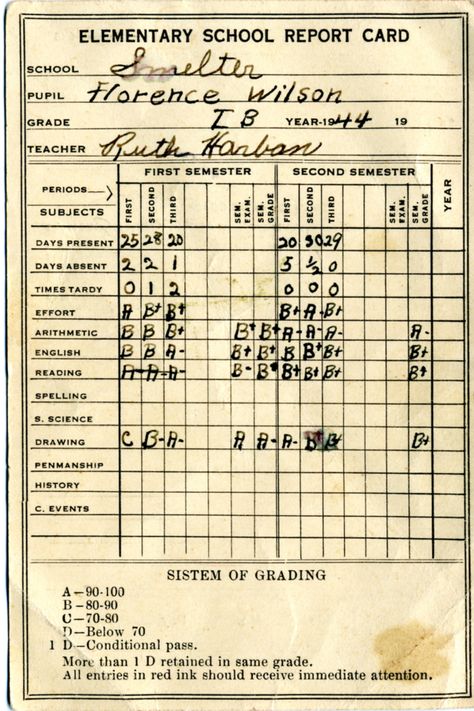 ELEMENTARY SCHOOL REPORT CARD
SCHOOL Smelter
PUPIL Florence Wilson
GRADE I B YEAR-1944 19
TEACHER Ruth Harban
FIRST SEMESTER SECOND SEMESTER
PERIODS FIRST SECOND THIRD SEM. EXAM. SEM. GRADE FIRST SECOND THIRD SEM. EXAM. SEM. GRADE YEAR
SUBJECTS
DAYS PRESENT 25 28 20 20 30 29
DAYS ABSENT 2 2 1 5 ½ 0
TIMES TARDY 0 1 2 0 0 0
EFFORT A B+ B+ B+ A- B+
ARITHMETIC B B B+ B+ B+ A- A- A- A-
ENGLISH B B A- B+ B+ B B+ B+ B+
READING A- A- A- B- B+ B+ B+ B+
SPELLING
S. SCIENCE
DRAWING C B- A- A A- A- B+ B+ B+
PENMANSHIP
HISTORY
C. EVENTS
SISTEM OF GRADING
A—90-100
B—80-90
C—70-80
D—Below 70
1 D—Conditional pass.
More than 1 D retained in same grade.
All entries in red ink should receive immediate attention.